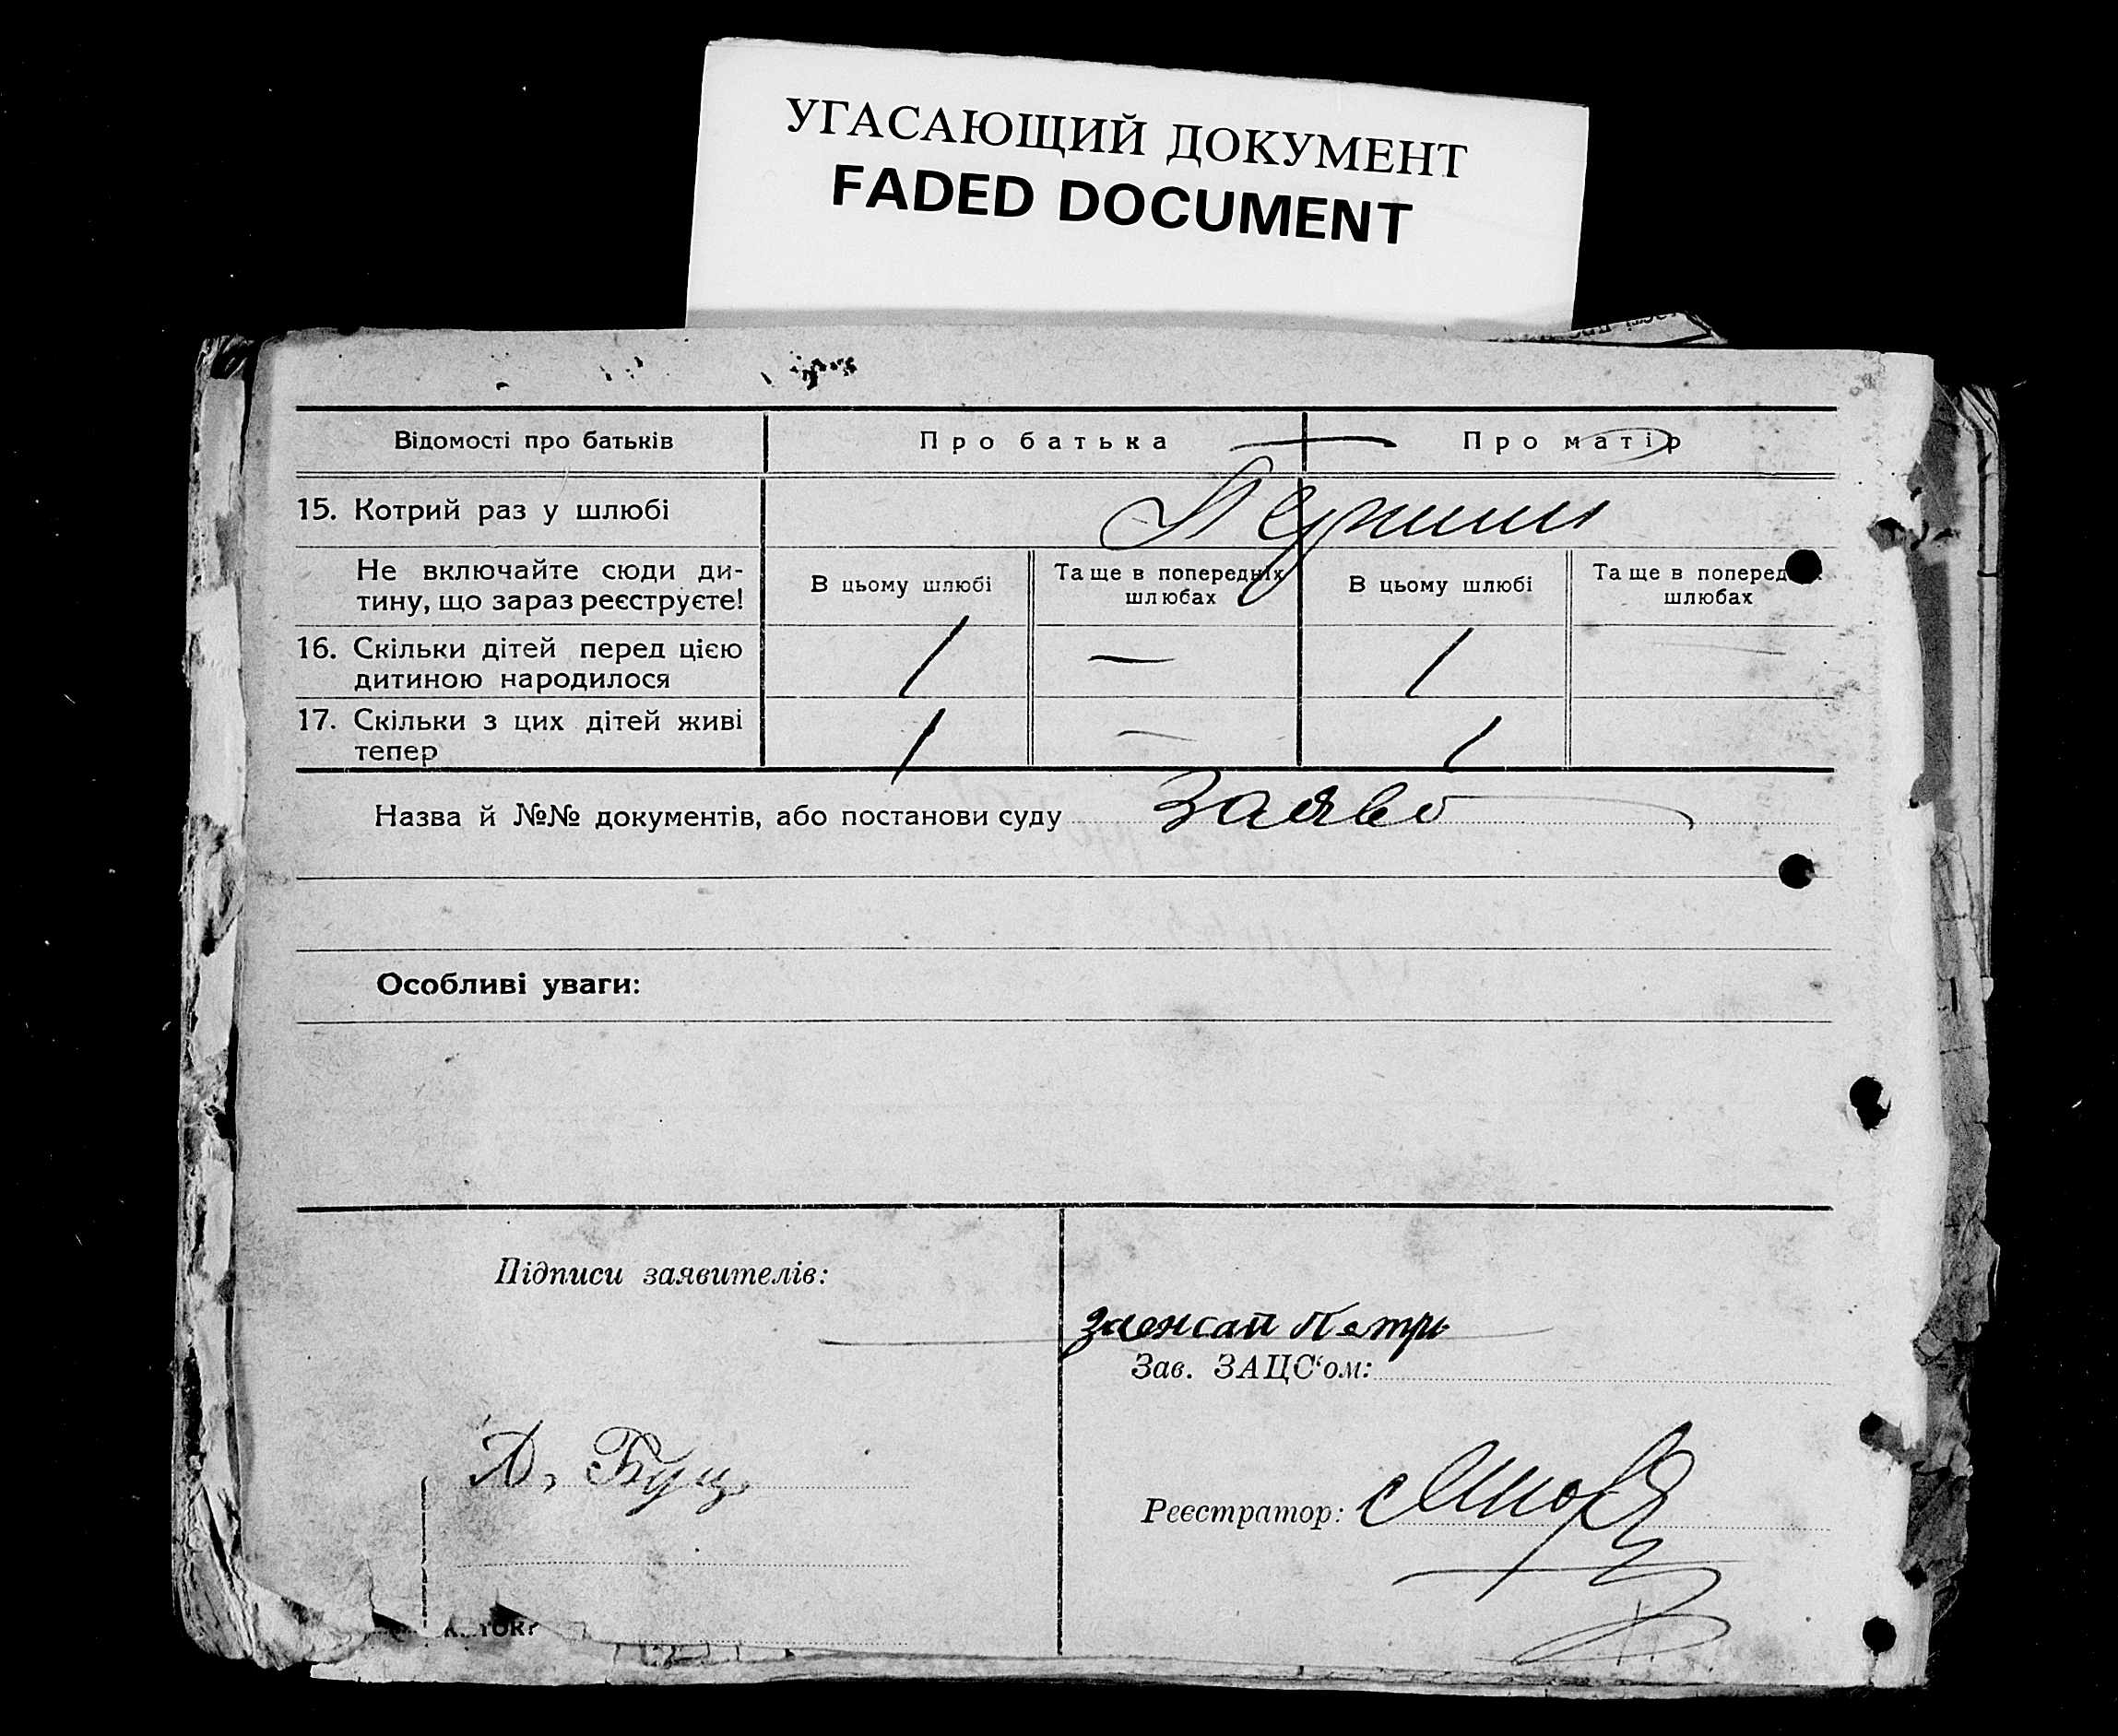 УГАСАЮЩИЙ ДОКУМЕНТ
FADED DOCUMENT
Відомості про батьків
Про батька
Про матір
15. Котрий раз у шлюбі
Не включайте сюди ди-
тину, що зараз реєструєте!
В цьому шлюбі
Та ще в попередніх
шлюбах
В цьому шлюбі
Та ще в поперед
шлюбах
16. Скільки дітей перед цією
дитиною народилося
1
—
1
—
17. Скільки з цих дітей живі
тепер
1
—
1
Назва й №№ документів, або постанови суду
Особливі уваги:
Підписи заявителів:
Петри
Зав. ЗАЦС‘ом:
Д. Буц
Реєстратор: